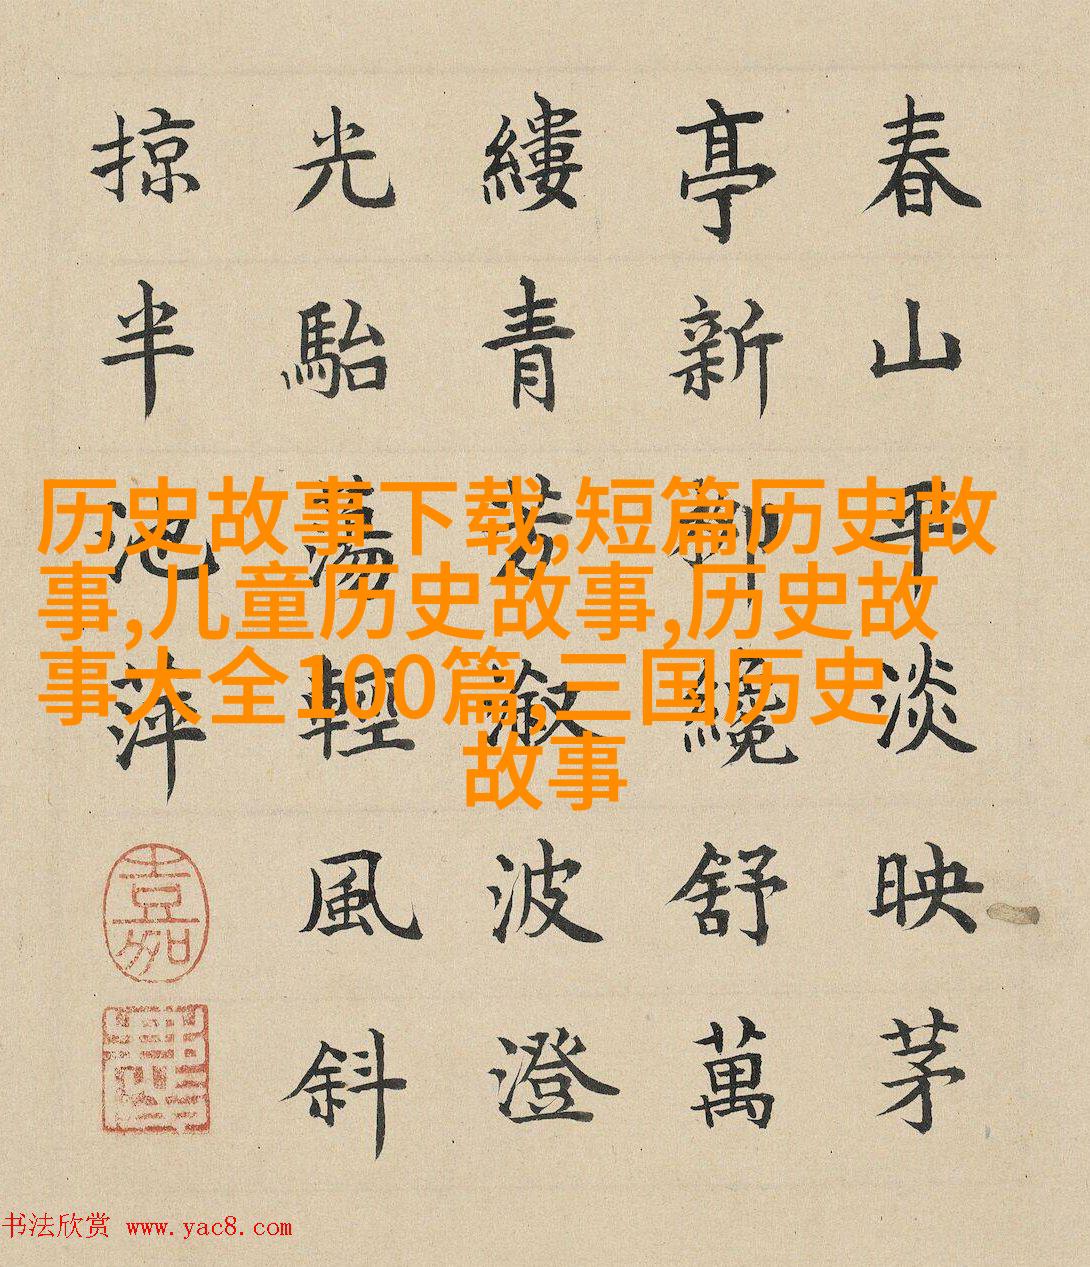 春山平淡映茅
亭新柳纔舒萬
縷青芳溆波澄
光駘蕩輕風斜
掠半池萍
嘉
历史故事下载,短篇历史故
事,儿童历史故事,历史故
事大全100篇,三国历史
故事
书法欣赏 www.yac8.com